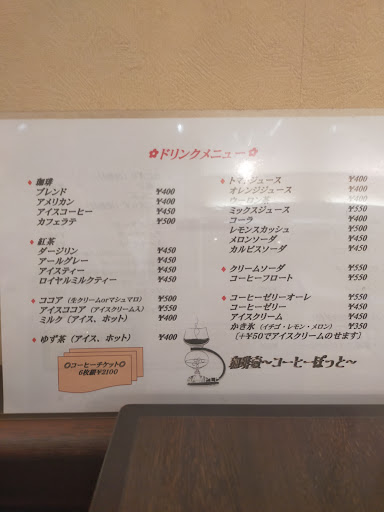 ✿ドリンクメニュー✿
♦ 珈琲
ブレンド ¥400
アメリカン ¥400
アイスコーヒー ¥450
カフェラテ ¥500
♦ 紅茶
ダージリン ¥450
アールグレー ¥450
アイスティー ¥450
ロイヤルミルクティー ¥450
♦ ココア（生クリームorマシュマロ） ¥500
アイスココア（アイスクリーム入） ¥550
ミルク（アイス、ホット） ¥400
♦ ゆず茶（アイス、ホット） ¥400
✪コーヒーチケット✪
6枚綴¥2100
♦ トマトジュース ¥400
オレンジジュース ¥400
ウーロン茶 ¥400
ミックスジュース ¥550
コーラ ¥400
レモンスカッシュ ¥500
メロンソーダ ¥450
カルピスソーダ ¥450
♦ クリームソーダ ¥550
コーヒーフロート ¥550
♦ コーヒーゼリーオーレ ¥550
コーヒーゼリー ¥450
アイスクリーム ¥450
かき氷（イチゴ・レモン・メロン） ¥350
（＋¥50でアイスクリームのせます）
～コーヒーぽっと～